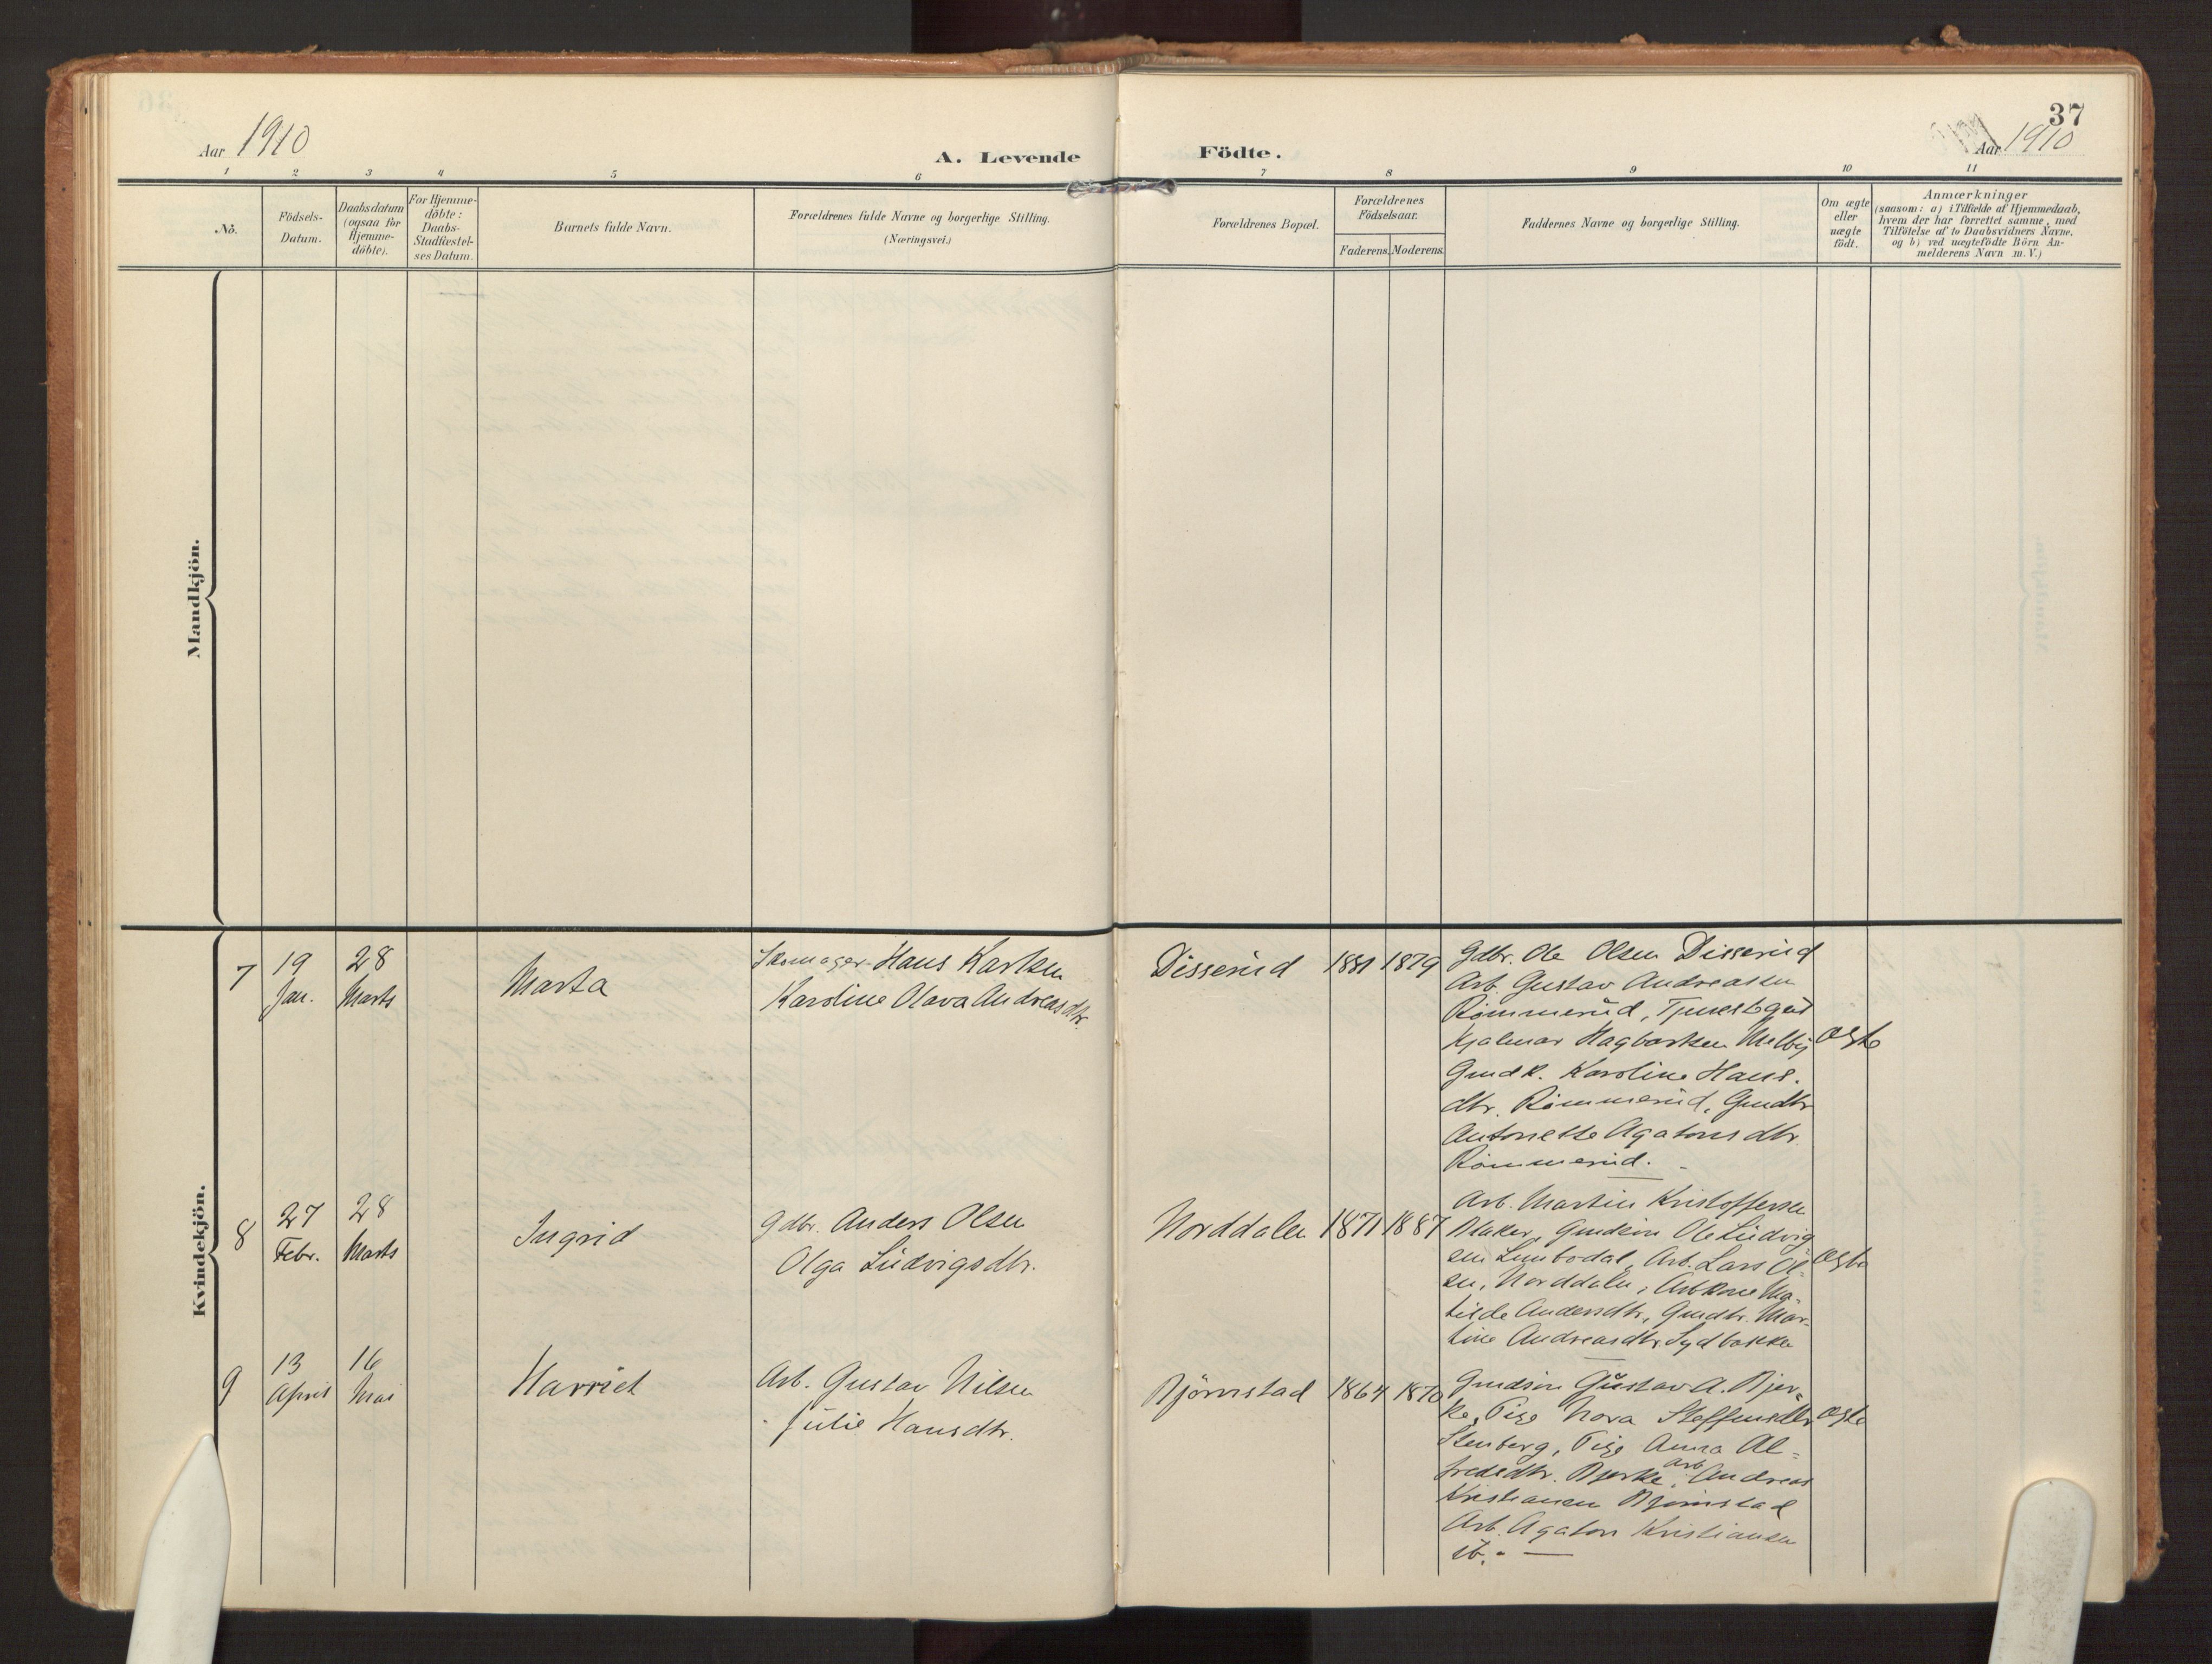 37
Aar 1910
A. Levende Födte.
Aar 1910
1 2 3 4 5 6 7 8 9 10 11
Nô.
Födsels-
Datum.
Daabsdatum
(ogsaa for
Hjemme-
döbte).
For Hjemme-
döbte:
Daabs-
Stadfæstel-
ses Datum.
Barnets fulde Navn.
Forældrenes fulde Navne og borgerlige Stilling.
(Næringsvei.)
Forældrenes Bopæl.
Forældrenes
Födselsaar.
Faderens. Moderens.
Faddernes Navne og borgerlige Stilling.
Om ægte
eller
uægte
födt.
Anmærkninger
(saasom: a) i Tilfælde af Hjemmedaab,
hvem der har forrettet samme, med
Tilföielse af to Daabsvidners Navne,
og b) ved uægtefödte Börn An-
melderens Navn m. V.)
Mandkjön.
Kvindekjön.
7
19
Jan.
28
Marts
Marta
Skomager Hans Karlsen
Karoline Olava Andreasdtr.
Disserud
1881
1879
Gdbr. Ole Olsen Disserud
Arb. Gustav Andreassen
Römmerud,
Hjalmar Hagbartsen Melby
Gmdk. Karoline Hans-
dtr. Römmerud, Gmdtr
Antonette Agatonsdtr.
Römmerud.
Ægte
8
27
Febr.
28
Marts
Ingrid
Gdbr. Anders Olsen
Olga Ludvigsdtr.
Norddalen
1871
1887
Arb. Martin Kristoffersen
Aaker, Gmdsön Ole Ludvig
sen Limbodal, Arb. Lars Ol-
sen, Norddalen, Arbkone Ma-
tilde Andersdtr, Gmdtr. Mar-
tine Andreasdtr. Sydbakken
Ægte
9
13
April
16
Mai
Harriet
Arb. Gustav Nilsen
Julie Hansdtr.
Björnstad
1864
1870
Gmdsön Gustav A. Bjer-
ke, Pige Nora Steffensdtr
Stenberg, Pige Anna Al-
fredsdtr. Bjerke, Arb. Andreas
Kristiansen Björnstad
Arb. Agaton Kristiansen
ib. -
Ægte